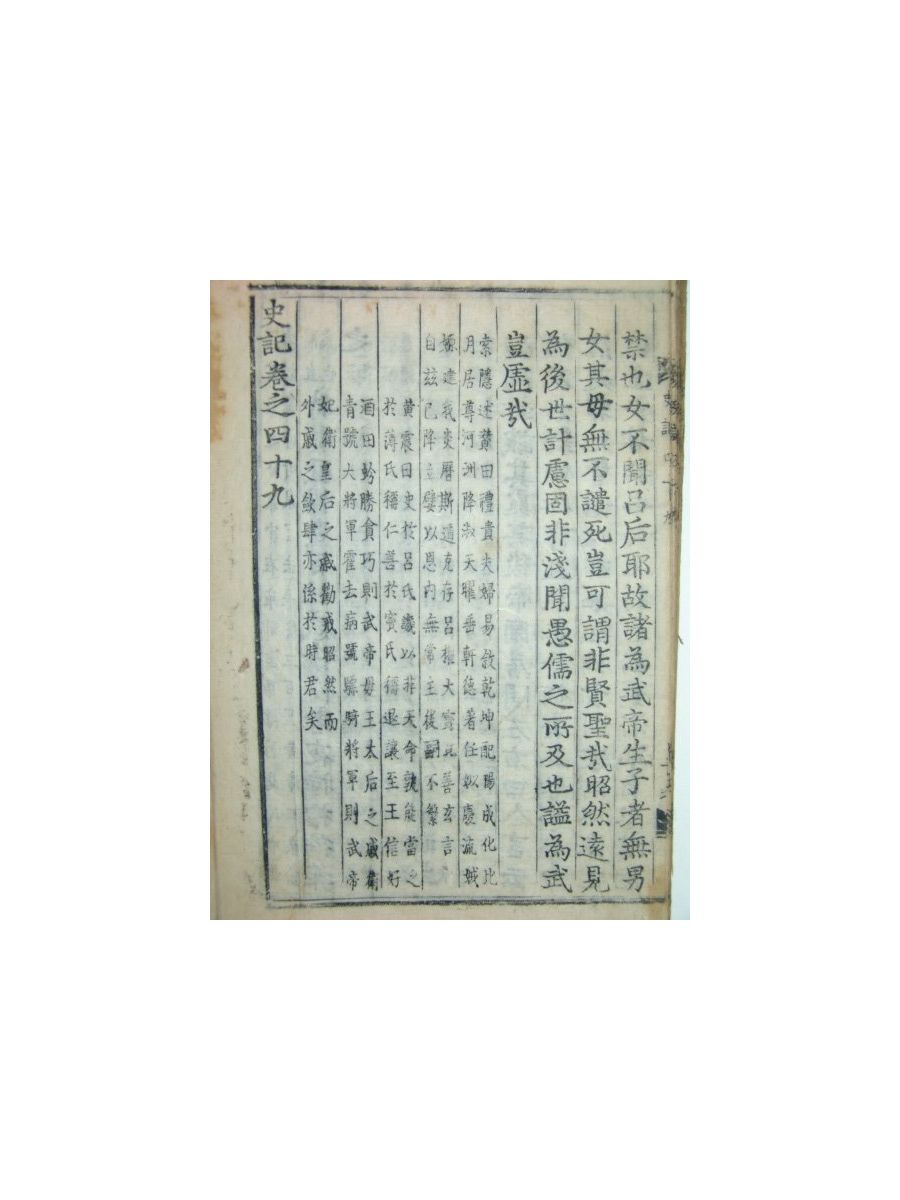 禁也女不聞呂后耶故諸為武帝生子者無男
女其母無不譴死豈可謂非賢聖哉昭然遠見
為後世計慮固非淺聞愚儒之所及也謚為武
豈虛哉
索隱述贊曰禮貴夫婦易敘乾坤配陽成化比
月居尊河洲降淑天曜垂軒德著任姒慶流娀
嫄逮我炎曆斯道克存呂權大寶竇善玄言
自茲已降立嬖以恩內無常主後嗣不繁
黃震曰史於呂氏譏以非天命孰能當之
於薄氏稱仁善於竇氏稱退讓至王信好
酒田蚡勝貪巧則武帝母王太后之戚衛
青號大將軍霍去病號驃騎將軍則武帝
妃衛皇后之戚勸戒昭然而
外戚之斂肆亦係於時君矣
史記卷之四十九